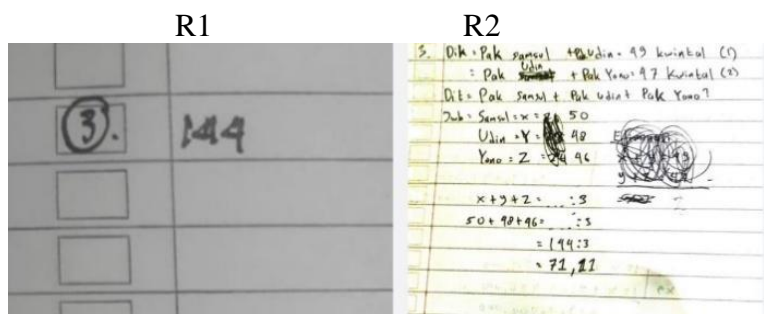 R1
R2
3. 144
3. Dik = Pak samsul + Pak Udin = 49 kwintal (1)
= Pak Udin + Pak Yono = 47 kwintal (2)
Dit = Pak samsul + Pak Udin + Pak Yono?
Jwb = Samsul = x = 50
Udin = Y = 48
Yono = Z = 46
x + y = 49
y + z = 47
x + y + z = ... : 3
50 + 48 + 46 = ... : 3
= 144 : 3
= 71,11